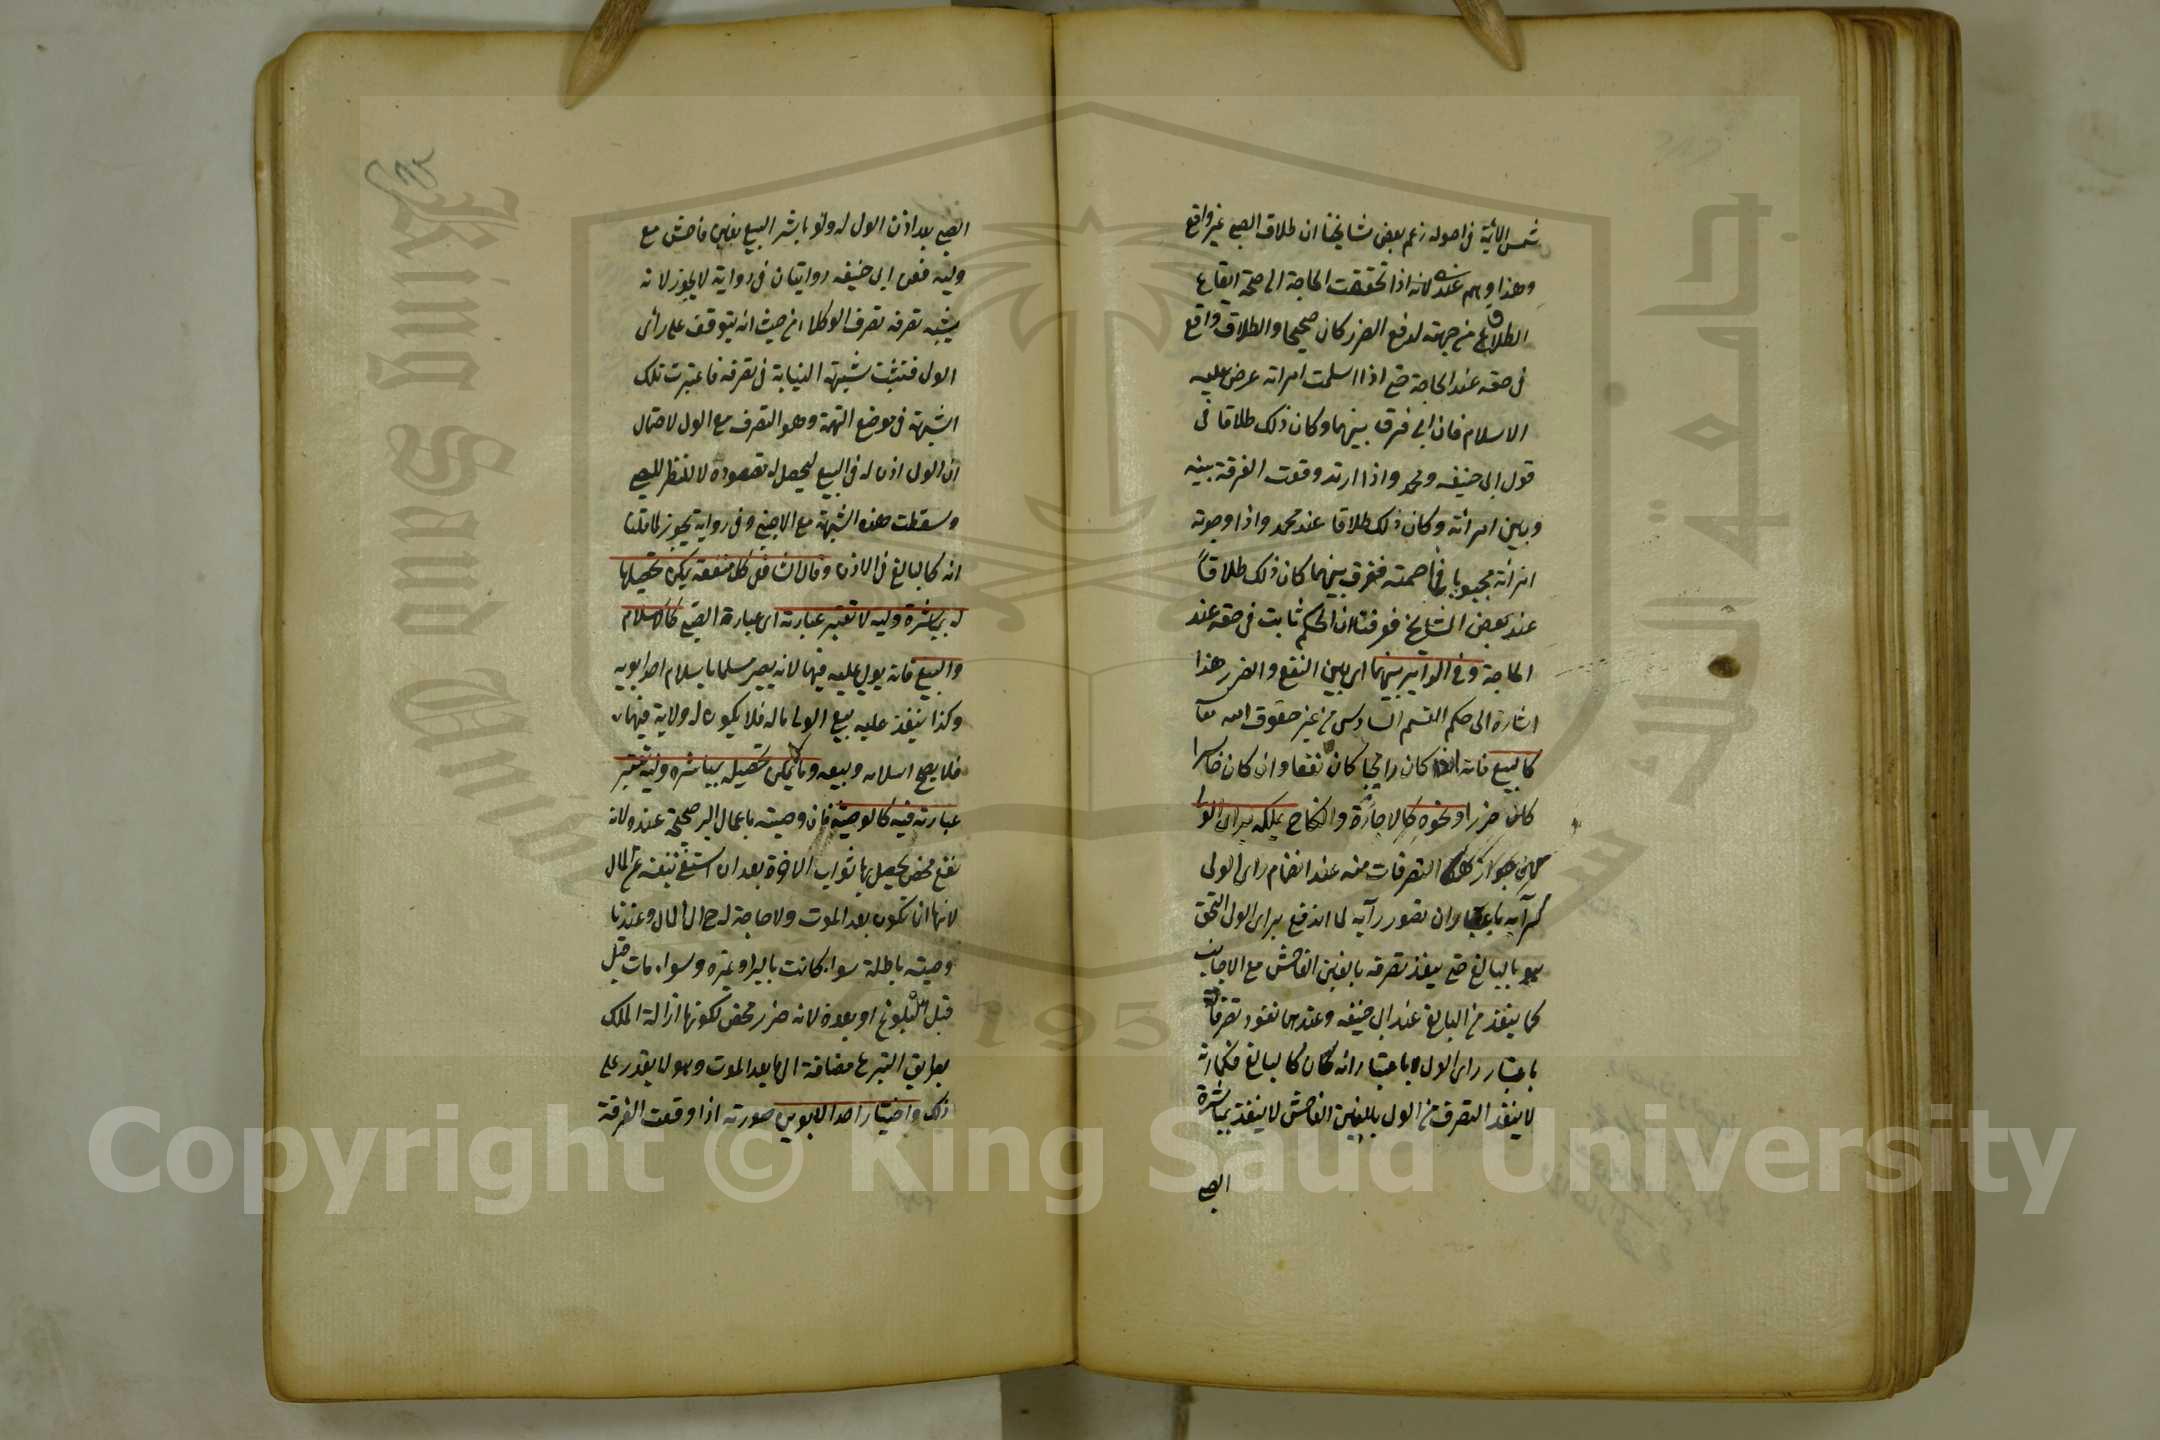 شمس الأئمة في اصوله زعم بعض مشايخنا ان طلاق الصبي غير واقع
وهذا وهم عندي لانه اذا تحققت الحاجة الى صحة ايقاع
الطلاق من جهته لدفع الضرر كان صحيحا والطلاق واقع
في حقه عند الحاجة حتى اذا اسلمت امراته عرض عليه
الاسلام فان ابى فرق بينهما وكان ذلك طلاقا في
قول ابي حنيفه ومحمد واذا ارتد وقعت الفرقة بينه
وبين امراته وكان ذلك طلاقا عند محمد واذا وجدته
امرأته مجبوبا فخاصمته ففرق بينهما كان ذلك طلاقاً
عند بعض المشايخ فعرفنا ان الحكم ثابت في حقه عند
الحاجة وفي الدائر بينهما اى بين النفع والضرر هذا
اشارة الى حكم القسم السادس من غير حقوق الله تعا
كالبيع فانه اذا كان رابحا كان نفعا وان كان خاسرا
كان ضررا ونحوه كالاجارة والنكاح يملكه براى الولى
جواز التصرفات منه عند انضمام راى الولى
ان قصور رأيه لما اندفع براى الولى التحق
هو بالبالغ حتى ينفذ تصرفه بالغبن الفاحش مع الاجانب
كما ينفذ من البالغ عند ابي حنيفه وعندهما نفوذ تصرفاته
باعتبار راى الولى لا باعتبار انه كان كالبالغ فكما انه
لا ينفذ التصرف من الولى بالغبن الفاحش لا ينفذ بمباشرة
الصبي
الصبي بعد اذن الولى له ولو باشر البيع بغبن فاحش مع
وليه فعن ابى حنيفه روايتان فى رواية لا يجوز لانه
يشبه تصرفه تصرف الوكلا من حيث انه يتوقف على رأى
الولى فتثبت شبهة النيابة في تصرفه فاعتبرت تلك
الشبهة فى موضع التهمة وهو التصرف مع الولى لاحتمال
ان الولى اذن له فى البيع ليحصل له مقصوده لا للنظر للصبي
وسقطت هذه الشبهة مع الاجنبي وفى رواية يجوز لما قلنا
انه كالبالغ فى الاذن وقال الشافعى كل منفعة يمكن تحصيلها
له بمباشرة وليه لا تعتبر عبارته اى عبارة الصبي كالاسلام
والبيع فانه يولى عليه فيهما لانه يصير مسلما باسلام احد ابويه
وكذا ينفذ عليه بيع الولى ماله فلا يكون له ولاية فيهما
فلا يصح اسلامه وبيعه وما لا يمكن تحصيله بمباشرة وليه تعتبر
عبارته فيه كالوصية فان وصيته باعمال البر صحيحة عنده لانه
نفع محض يحصل بها ثواب الاخرة بعد ان استغنى بنفسه عن المال
لانها انما تكون بعد الموت ولا حاجة له ح الى المال وعندنا
وصيته باطلة سواء كانت بالبر او غيره وسواء مات قبل
قبل البلوغ او بعده لانه ضرر محض لكونها ازالة الملك
بطريق التبرع مضافة الى ما بعد الموت وهو لا يقدر على
ذلك واختيار احد الابوين صورته اذا وقعت الفرقة
Copyright © King Saud University
1957